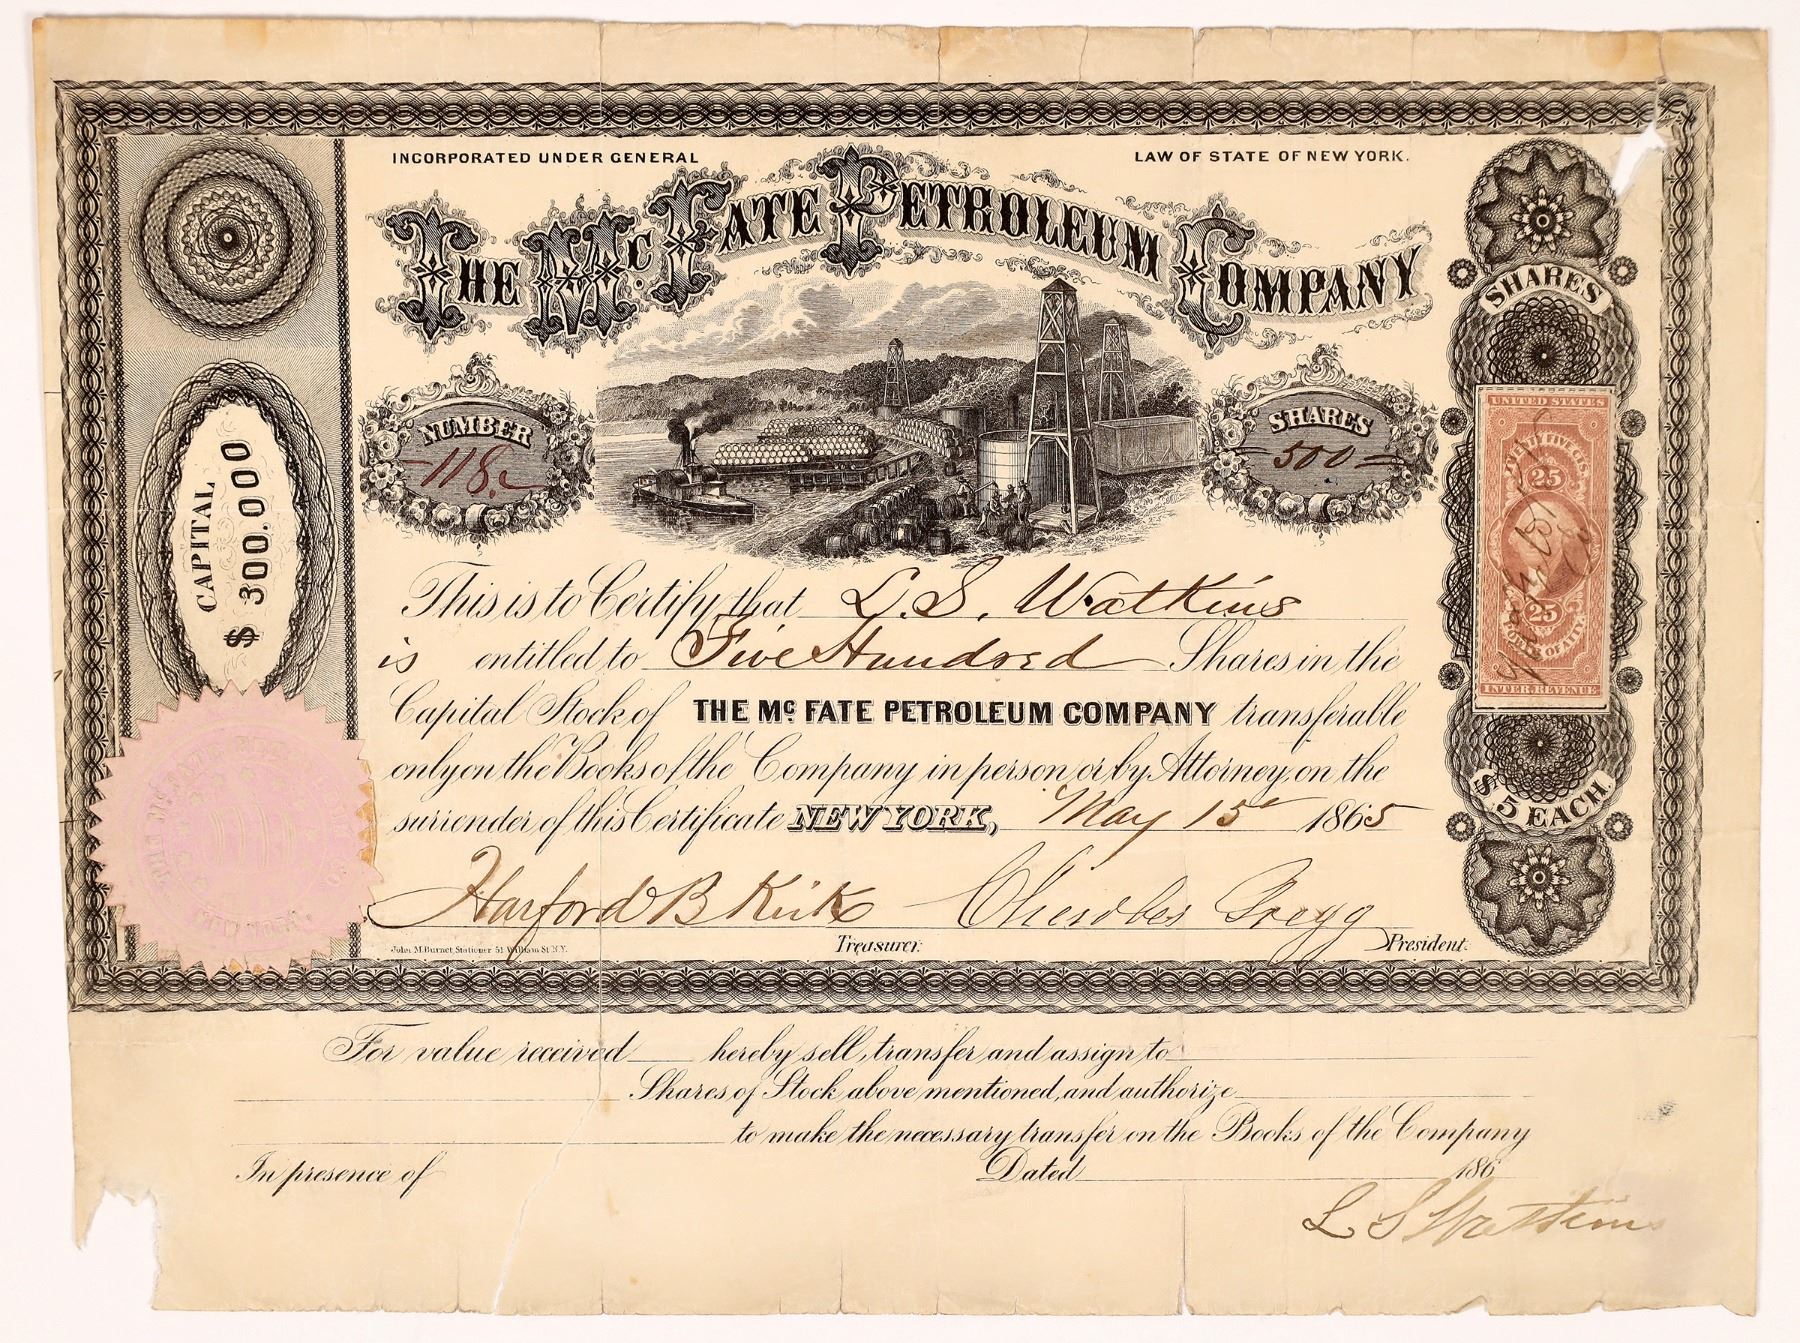 INCORPORATED UNDER GENERAL LAW OF STATE OF NEW YORK.
THE Mc. FATE PETROLEUM COMPANY
NUMBER
118.
SHARES
500
CAPITAL
$ 300.000
SHARES
$ 5 EACH.
UNITED STATES
25
25
POWER OF ATT'Y.
INTER. REVENUE
This is to Certify that L. S. Watkins
is entitled to Five Hundred Shares in the
Capital Stock of THE Mc. FATE PETROLEUM COMPANY transferable
only on the Books of the Company in person or by Attorney, on the
surrender of this Certificate NEW YORK, May 15 1865
Harford B Kirk Charles Gregg
John M. Burnet, Stationer 51 William St. N.Y. Treasurer. President.
For value received hereby sell, transfer and assign to
Shares of Stock above mentioned, and authorize
to make the necessary transfer on the Books of the Company
In presence of Dated 186
L S Watkins